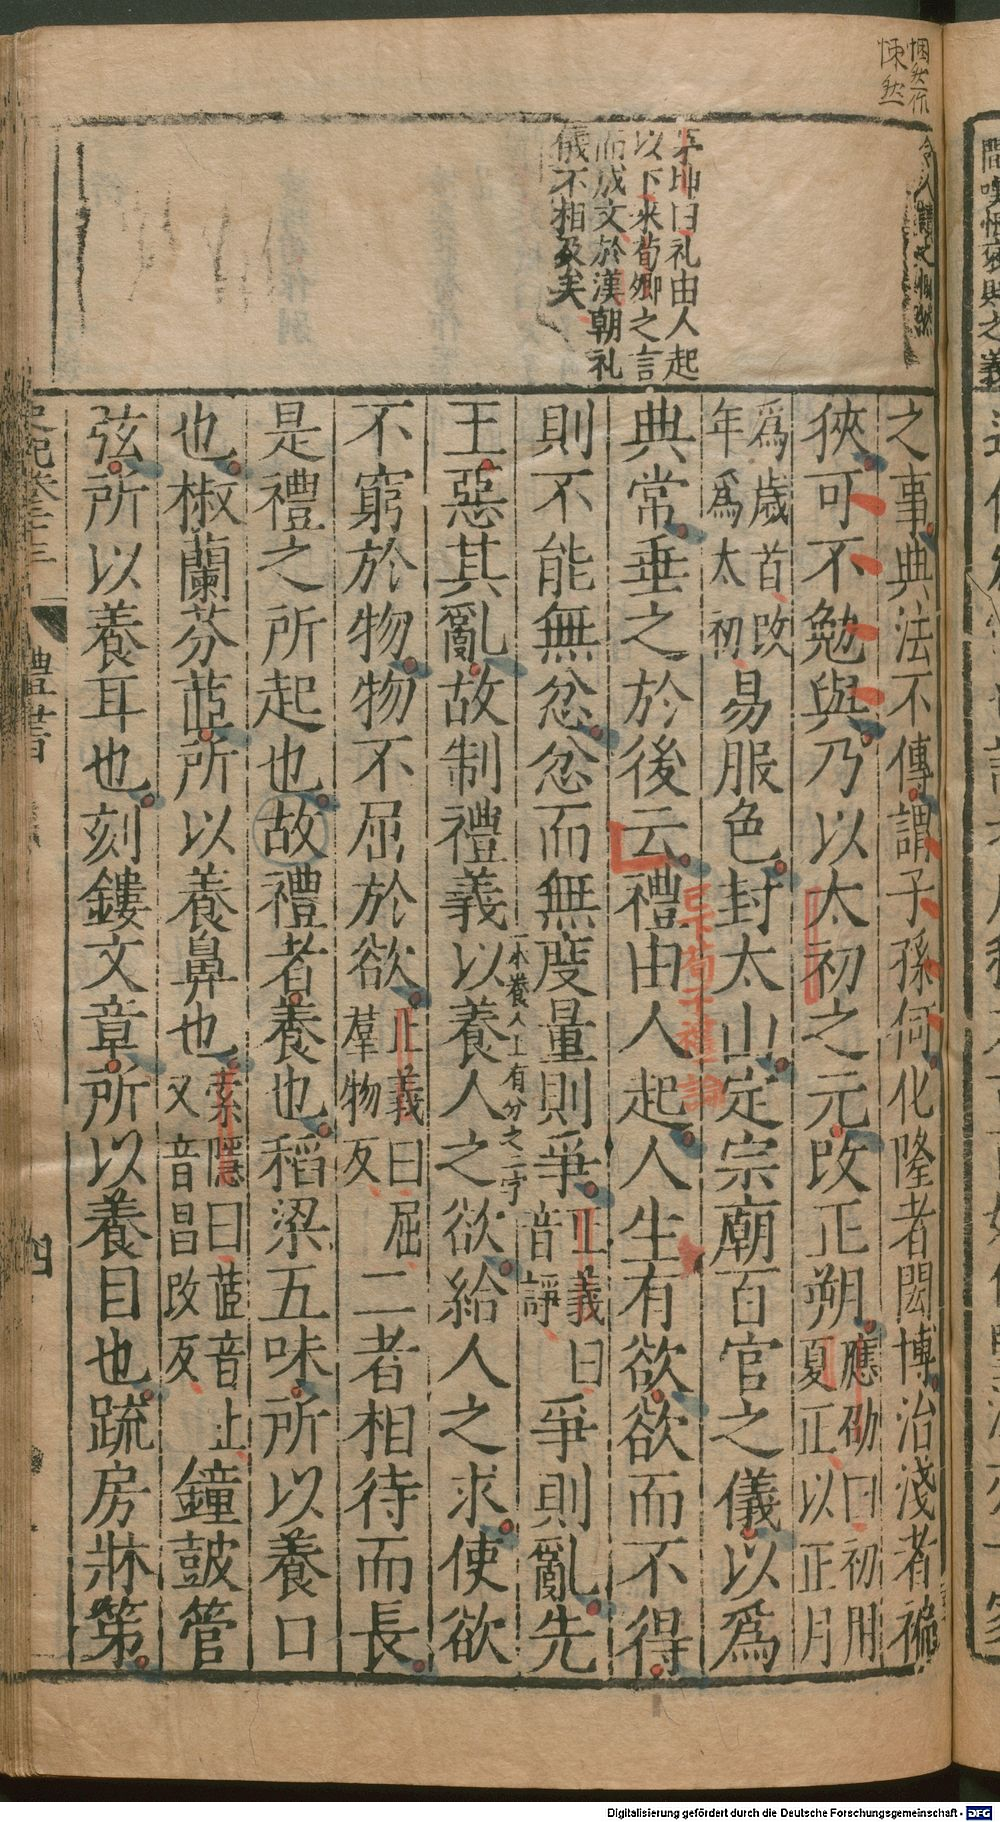 悃然作
悚然
李坤曰礼由人起
以下來荀卿之言
而成文於漢朝礼
儀不相及矣
之事典法不傳謂子孫何化隆者閎博治淺者褊
狹可不勉與乃以太初之元改正朔應劭曰初用
夏正以正月
爲歲首改
年爲太初
易服色封太山定宗廟百官之儀以爲
典常垂之於後云禮由人起人生有欲欲而不得
已下荀子禮論
則不能無忿忿而無度量則爭正義曰
音諍
爭則亂先
王惡其亂故制禮義以養人之欲給人之求使欲
一本養人上有分之二字
不窮於物物不屈於欲正義曰屈
羣物反
二者相待而長
是禮之所起也故禮者養也稻梁五味所以養口
也椒蘭芬茝所以養鼻也索隱曰茝音止
又音昌改反
鐘鼓管
弦所以養耳也刻鏤文章所以養目也疏房牀第
史記卷二十三
禮書
四
Digitalisierung gefördert durch die Deutsche Forschungsgemeinschaft - DFG